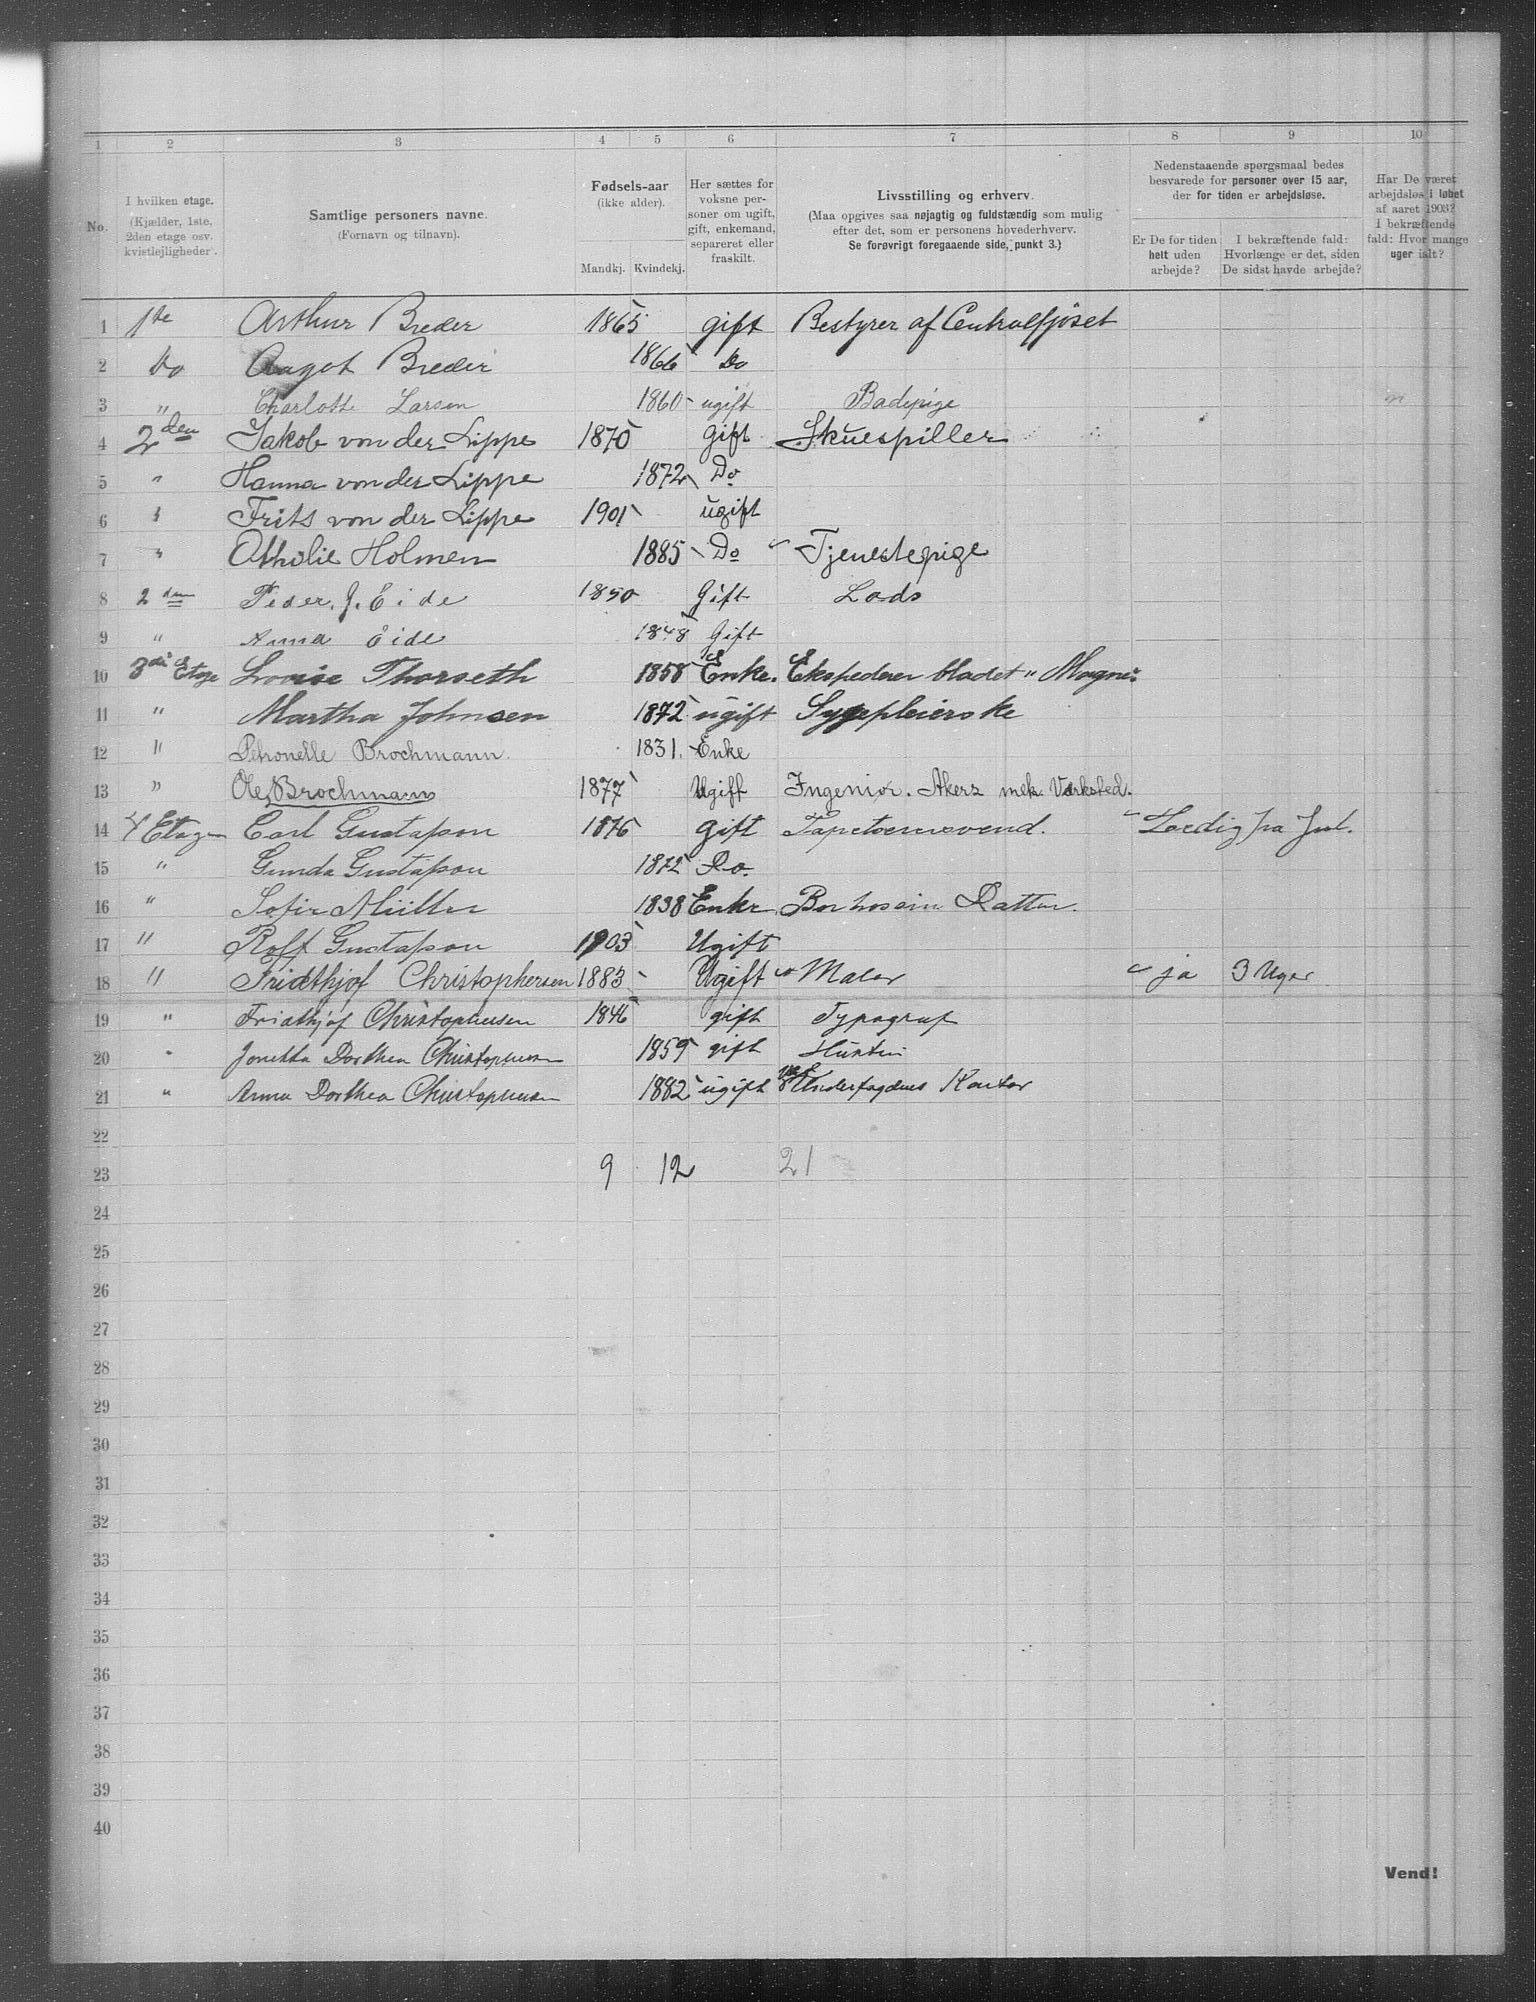 1 2 3 4 5 6 7 8 9 10
No.
I hvilken etage.
(Kjælder, 1ste, 2den etage osv. kvistlejligheder.
Samtlige personers navne.
(Fornavn og tilnavn).
Fødsels-aar
(ikke alder).
Mandkj. Kvindekj.
Her sættes for voksne personer om ugift, gift, enkemand, separeret eller fraskilt.
Livsstilling og erhverv.
(Maa opgives saa nøjagtig og fuldstændig som mulig
efter det, som er personens hovederhverv.
Se forøvrigt foregaaende side, punkt 3.)
Nedenstaaende spørgsmaal bedes
besvarede for personer over 15 aar,
der for tiden er arbejdsløse.
Er De for tiden helt uden arbejde?
I bekræftende fald: Hvorlænge er det, siden De sidst havde arbejde?
Har De været arbejdsløs i løbet af aaret 1903? I bekræftende fald: Hvor mange uger ialt?
1 1ste Arthur Breder 1865 gift Bestyrer af Centralfjøset
2 Do Aagot Breder 1866 Do
3 " Charlotte Larsen 1860 ugift Badepige
4 2den Jakob von der Lippe 1870 gift Skuespiller
5 " Hanna von der Lippe 1872 Do
6 " Frits von der Lippe 1901 ugift
7 " Othilie Holmen 1885 Do Tjenestepige
8 2den Peder. J. Eide 1850 Gift Lods
9 " Anna Eide 1848 Gift
10 3die Etage Louise Thorseth 1858 Enke. Ekspederer bladet "Magne"
11 " Martha Johnsen 1872 ugift Sygepleierske
12 " Petronelle Brochmann. 1831. Enke
13 " Ole Brochmann 1877 Ugift Ingeniør. Akers mek. Værksted.
14 4 Etagen Carl Gustafson 1876 gift Lædig fra Jul.
15 " Gunda Gustafson 1872 Do.
16 " Sofie Müller 1838 Enke Bor hos sin Datter.
17 " Rolf Gustafson 1903 Ugift
18 " Fridthjof Christophersen 1883 Ugift Maler ja 3 Uger
19 " Fridthjof Christophersen 1846 gift Typograf
20 " Jonetta Dorthea Christophersen 1859 gift Hustru
21 " Anna Dorthea Christophersen 1882 ugift Kontor
22
23 9 12 21
24
25
26
27
28
29
30
31
32
33
34
35
36
37
38
39
40
Vend!